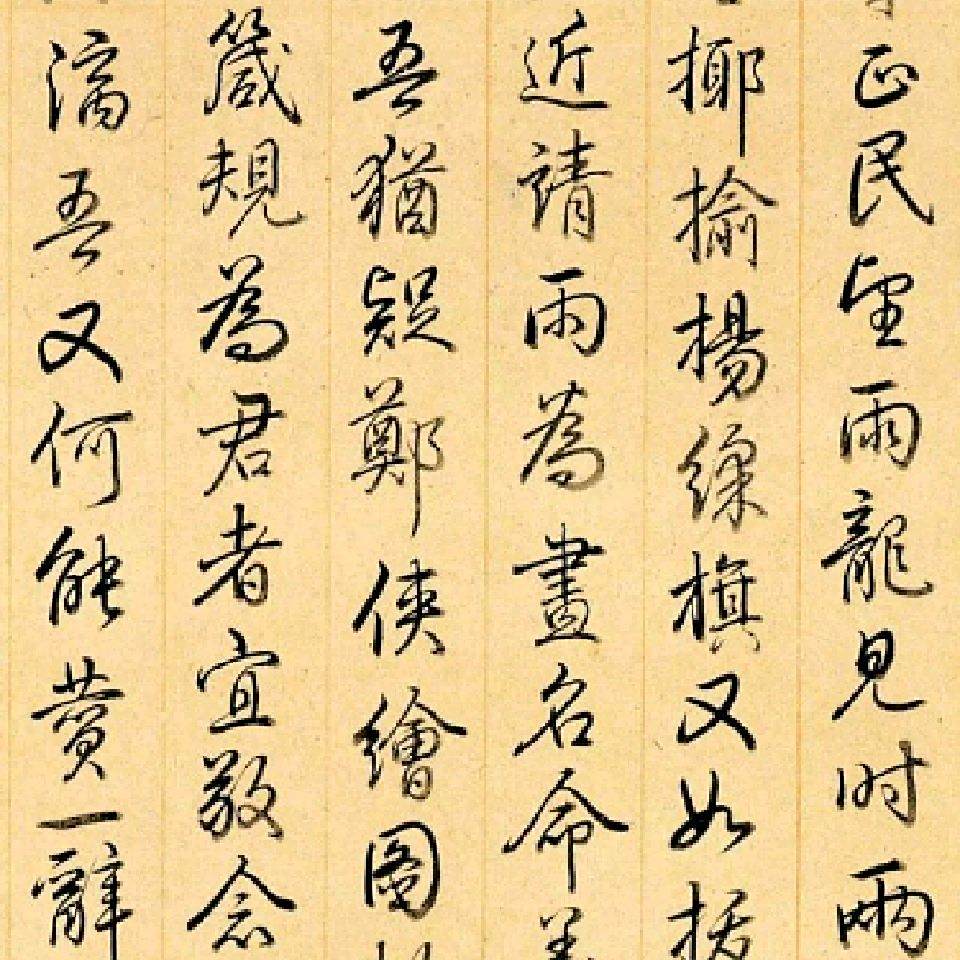 正民望雨龍見时雨
揶揄楊繰旗又如
近請雨為畫名命
吾猶疑鄭俠繪圖
箴規為君者宜敬念
滴吾又何能贊一辭